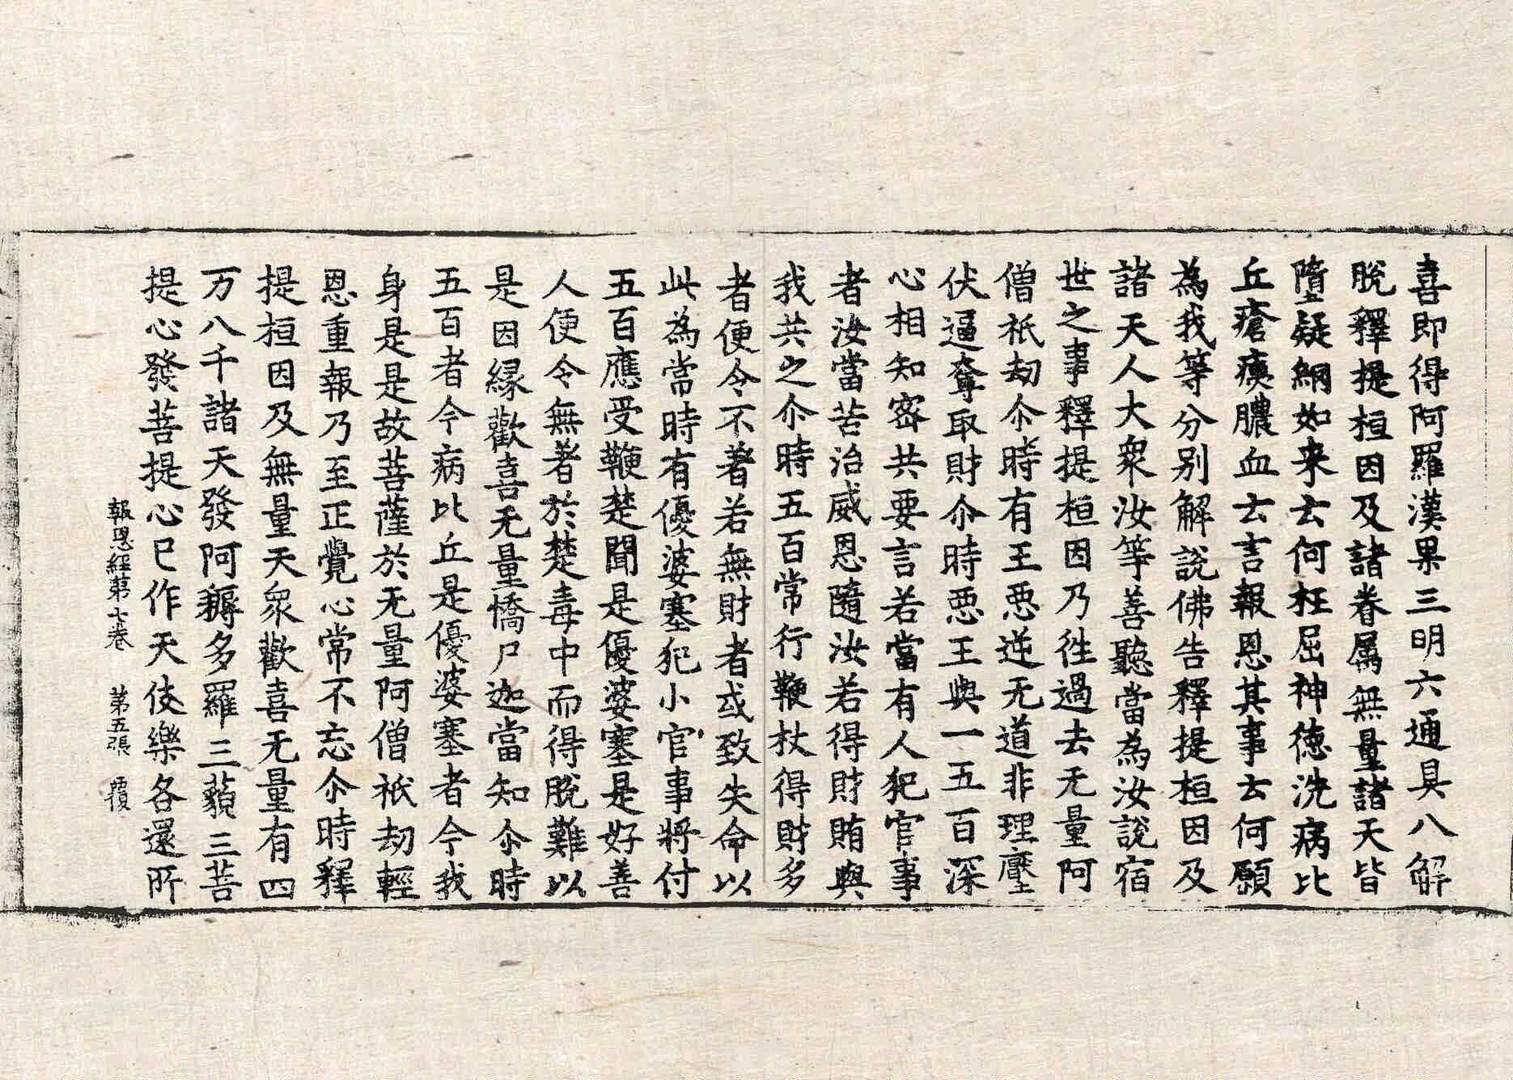 喜即得阿羅漢果三明六通具八解
脫釋提桓因及諸眷属無量諸天皆
墮疑網如来云何枉屈神徳洗病比
丘瘡痍膿血云言報恩其事云何願
為我等分别解說佛告釋提桓因及
諸天人大衆汝等善聽當為汝說宿
世之事釋提桓因乃徃過去无量阿
僧祇劫尒時有王惡逆无道非理壓
伏逼奪取財尒時惡王與一五百深
心相知密共要言若當有人犯官事
者汝當苦治威恩隨汝若得財賄與
我共之尒時五百常行鞭杖得財多
者便令不著若無財者或致失命以
此為常時有優婆塞犯小官事將付
五百應受鞭楚聞是優婆塞是好善
人便令無著於楚毒中而得脫難以
是因緣歡喜无量憍尸迦當知尒時
五百者今病比丘是優婆塞者今我
身是是故菩薩於无量阿僧祇劫輕
恩重報乃至正覺心常不忘尒時釋
提桓因及無量天衆歡喜无量有四
万八千諸天發阿耨多羅三藐三菩
提心發菩提心已作天伎樂各還所
報恩經第七卷 第五張 覆